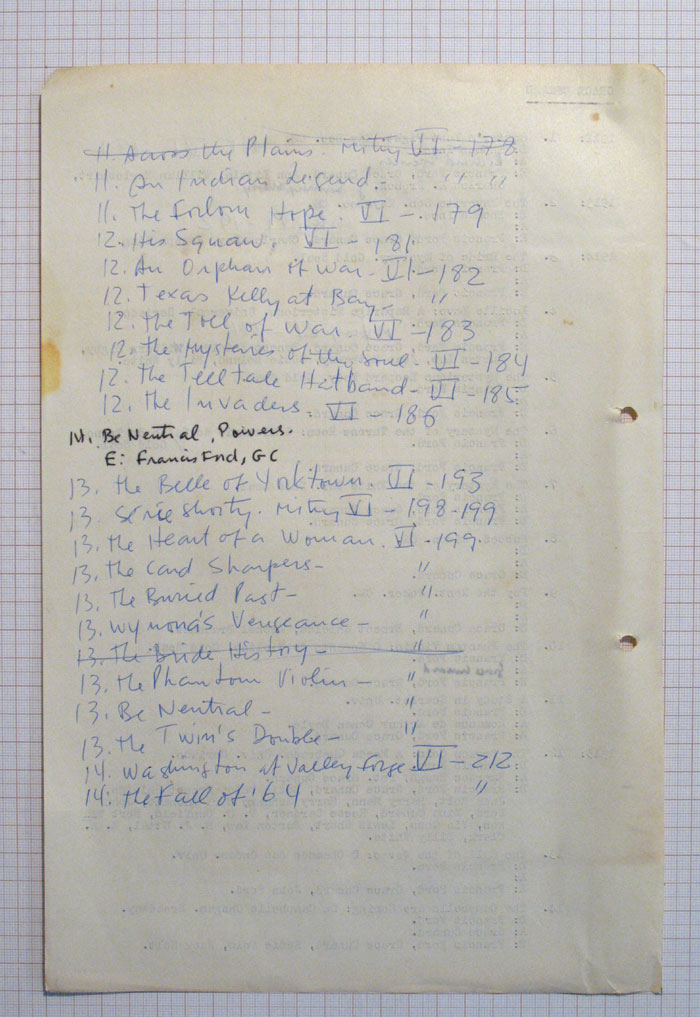 11. Across the Plains. Mitry VI - 178
11. An Indian Legend. " "
11. The Forlorn Hope. VI - 179
12. His Squaw. VI - 181
12. An Orphan of War - VI - 182
12. Texas Kelly at Bay "
12. The Toll of War. VI - 183
12. The Mysteries of the Soul - VI - 184
12. The Tell tale Hatband - VI - 185
12. The Invaders. VI - 186
14. Be Neutral, Powers.
E: Francis Ford, GC
13. The Belle of Yorktown. VI - 193
13. Shorty. Mitry VI - 198-199
13. The Heart of a Woman. VI - 199
13. The Card Sharpers - "
13. The Buried Past - "
13. Wynona's Vengeance - "
13. The Bride History - "
13. The Phantom Violin - "
13. Be Neutral - "
13. The Twin's Double - "
14. Washington at Valley Forge VI - 212
14. The Fall of '64 "